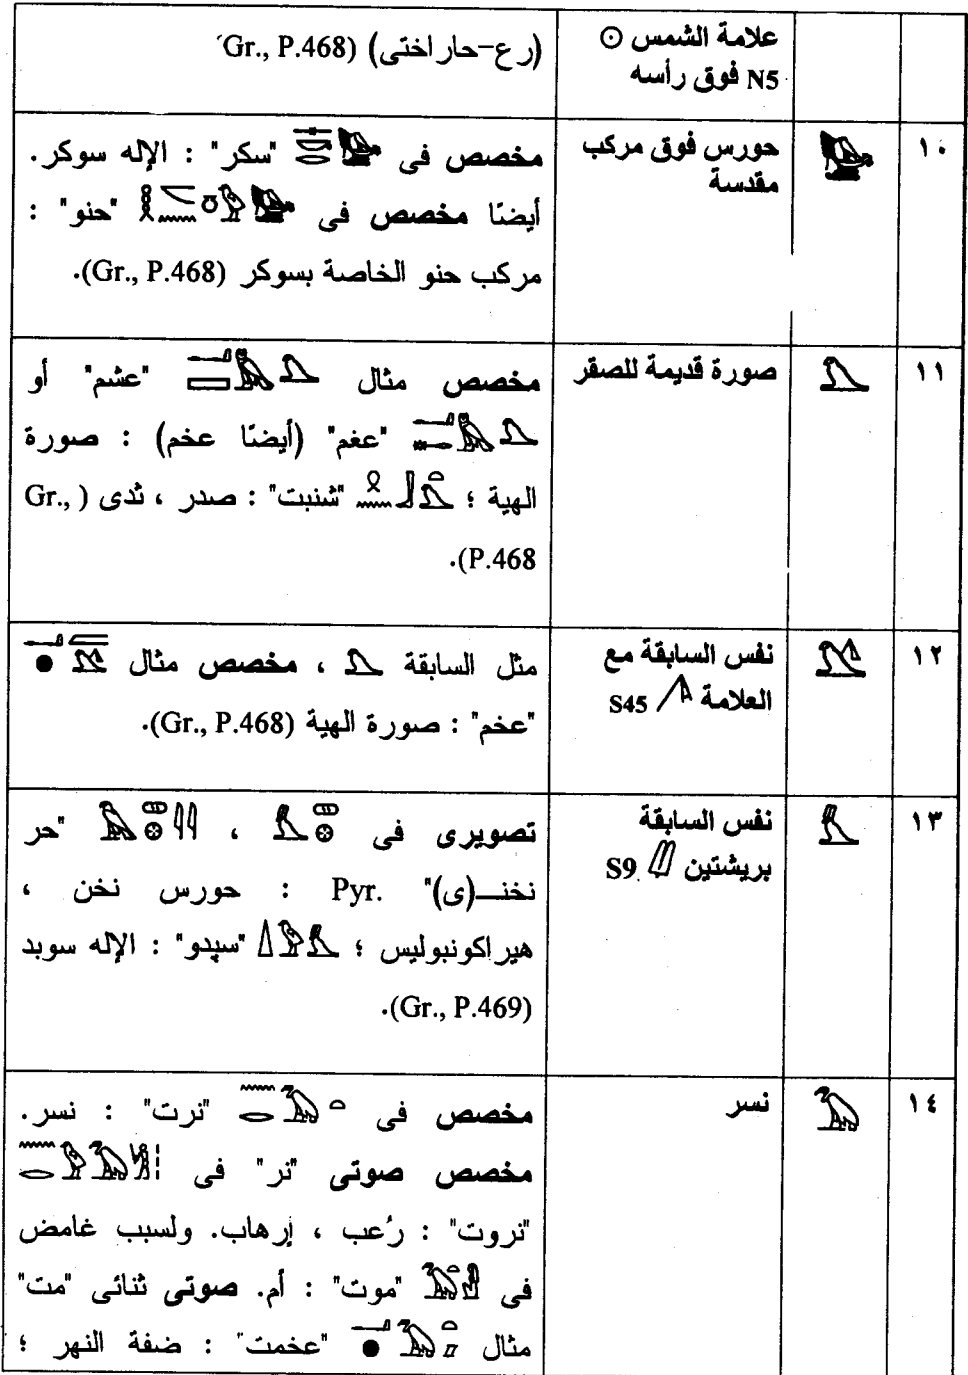 علامة الشمس ⊙
N5 فوق رأسه
(رع-حار اختى) (Gr., P.468
١٠
حورس فوق مركب
مقدسة
مخصص فى "سكر" : الإله سوكر.
أيضًا مخصص فى "حنو" :
مركب حنو الخاصة بسوكر (Gr., P.468).
١١
صورة قديمة للصقر
مخصص مثال "عشم" أو
"عغم" (أيضًا عخم) : صورة
الهية ؛ "شنبت" : صدر ، ثدى (Gr.,
P.468).
١٢
نفس السابقة مع
العلامة S45
مثل السابقة ، مخصص مثال
"عخم" : صورة الهية (Gr., P.468).
١٣
نفس السابقة
بريشتين S9
تصويرى فى ، "حر
نخنـــ(ى)" Pyr. : حورس نخن ،
هيراكونبوليس ؛ "سپدو" : الإله سوبد
(Gr., P.469).
١٤
نسر
مخصص فى "نرت" : نسر.
مخصص صوتى "نر" فى
"نروت" : رُعب ، إرهاب. ولسبب غامض
فى "موت" : أم. صوتى ثنائى "مت"
مثال "عخمت" : ضفة النهر ؛